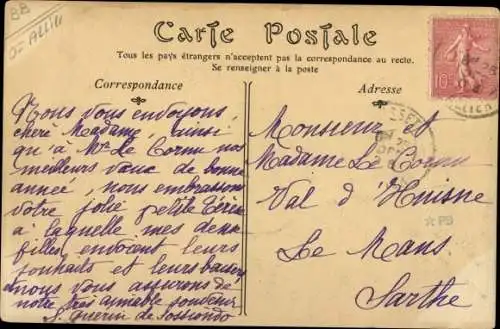 BB
D- ALLIER
Carte Postale
Tous les pays étrangers n'acceptent pas la correspondance au recto.
Se renseigner à la poste
Correspondance
Adresse
10
Nous vous envoyons,
chère Madame, ainsi
qu'à Mr Le Cornu nos
meilleurs vœux de bonne
année, nous embrassons
votre jolie petite
à laquelle mes deux
filles envoient leurs
souhaits et leurs baisers
nous vous assurons de
notre très aimable souvenir
S. Guerin de Sossiondo
Monsieur et
Madame Le Cornu
Val d'Huisne
Le Mans
Sarthe
PB